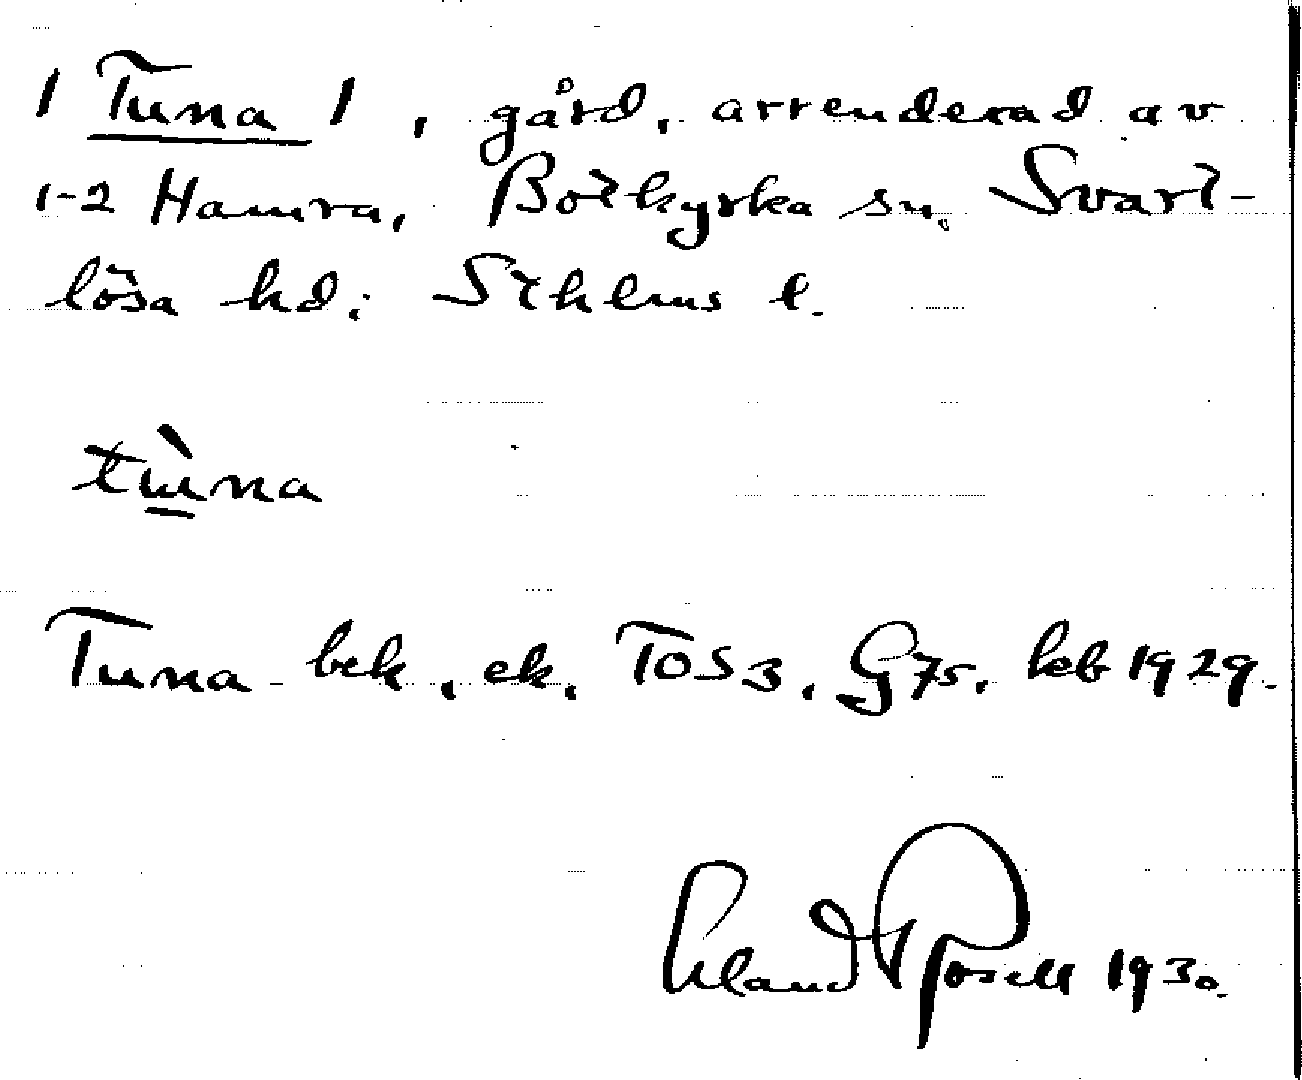 1 Tuna 1, gård, arrenderad av
1-2 Hamra, Botkyrka sn. Svart-
lösa hd; Sthlms l.
tùna
Tuna bek, ek, TOS3, G75, keb 1929.
Erland Rosell 1930.